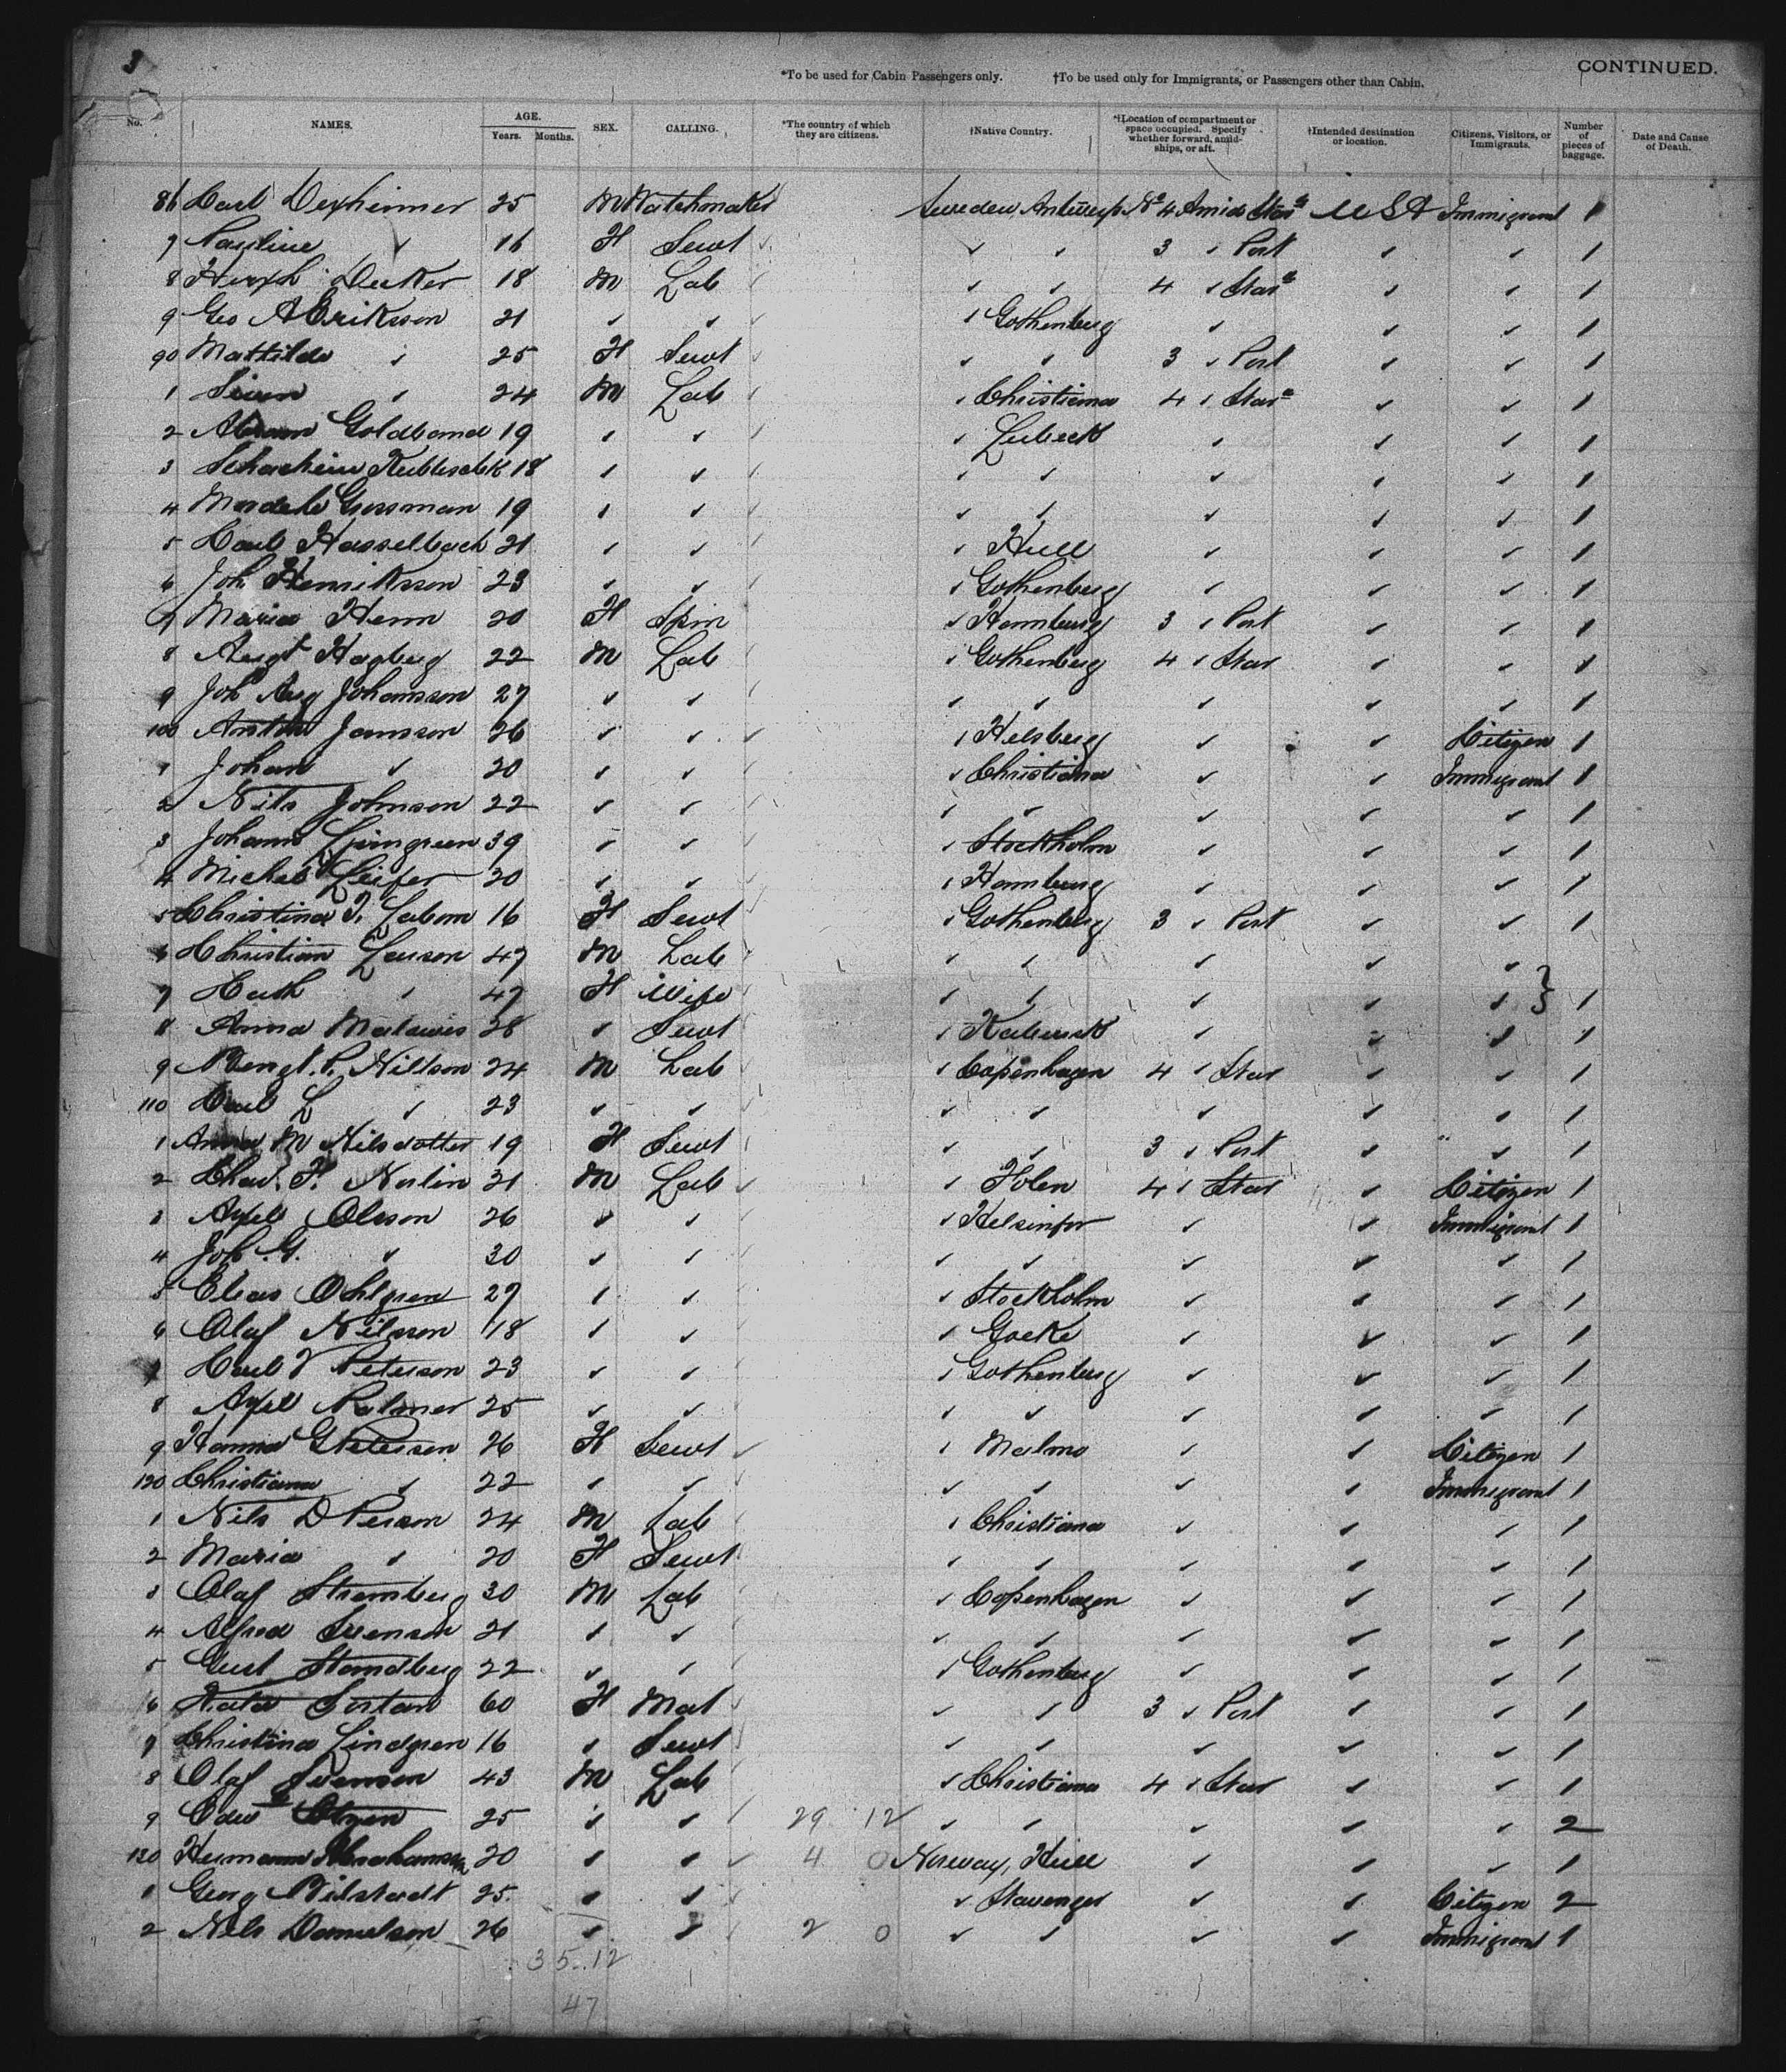 3
CONTINUED.
*To be used for Cabin Passengers only. †To be used only for Immigrants, or Passengers other than Cabin.
No. NAMES. AGE. Years. Months. SEX. CALLING. *The country of which they are citizens. †Native Country. *†Location of compartment or space occupied. Specify whether forward, amidships, or aft. †Intended destination or location. Citizens, Visitors, or Immigrants. Number of pieces of baggage. Date and Cause of Death.
86 Carl Dexheimer 25 M Watchmaker Sweden, Antwerp No 4 Amids Star U S A Immigrant 1
7 Pauline " 16 F Servt " " 3 " Port " " 1
8 Decker 18 M Lab " " 4 " Star " " 1
9 Geo A Eriksson 21 " " " Gothenberg " " " 1
90 Mathilda " 25 F Servt " " 3 " Port " " 1
1 " 24 M Lab " Christiana 4 " Star " " 1
2 Goldband 19 " " " Lubeck " " " 1
3 18 " " " " " " " 1
4 Grossman 19 " " " " " " " 1
5 Carl Hasselbach 21 " " " Hull " " " 1
6 Joh Henriksson 23 " " " Gothenberg " " " 1
7 Maria Henn 20 F Spin " Hamburg 3 " Port " " 1
8 Augt Hagberg 22 M Lab " Gothenberg 4 " Star " " 1
9 Joh Aug Johansson 27 " " " " " " " 1
100 Jansson 26 " " " Helsberg " " Citizen 1
1 Johan " 20 " " " Christiana " " Immigrant 1
2 Nils Johnson 22 " " " " " " " 1
3 Johann 39 " " " Stockholm " " " 1
4 Michel 20 " " " Hamburg " " " 1
5 Christina 16 F Servt " Gothenberg 3 " Port " " 1
6 Christian Larson 47 M Lab " " " " "
7 Cath " 47 F Wife " " " " " 1
8 Anna 28 " Servt " " " " 1
9 Bengt P. Nillson 24 M Lab " Copenhagen 4 " Star " " 1
110 Carl L " 23 " " " " " " " 1
1 Anna M Nilsdotter 19 F Servt " " 3 " Port " " 1
2 Chas. F. Norlin 31 M Lab " 4 " Star " Citizen 1
3 Axel Olsson 26 " " " Helsinfor " " Immigrant 1
4 Joh. G. " 30 " " " " " " " 1
5 Elias Ohlgren 27 " " " Stockholm " " " 1
6 Olaf Nilsson 18 " " " " " " 1
7 Carl V Peterson 23 " " " Gothenberg " " " 1
8 Axel Palmer 25 " " " " " " " 1
9 Hanna G Peterson 26 F Servt " Malmo " " Citizen 1
120 Christiana " 22 " " " " " " Immigrant 1
1 Nils D Persson 24 M Lab " Christiana " " " 1
2 Maria " 20 F Servt " " " " " 1
3 Olaf Stromberg 30 M Lab " Copenhagen " " " 1
4 Alfred Svenson 21 " " " " " " " 1
5 Gust Standberg 22 " " " Gothenberg " " " 1
6 60 F Mat " " 3 " Port " " 1
7 Christina Lindgren 16 " Servt " " " " " 1
8 Olaf Svenson 43 M Lab " Christiana 4 " Star " " 1
9 Edw Olsen 25 " " 29 12 " " " " " 2
130 Hermann Abrahamson 20 " " 4 0 Norway, Hull " " " 1
1 Georg 25 " " " Stavenger " " Citizen 2
2 Nils Danielson 26 " " 2 0 " " " " Immigrant 1
35.12
47